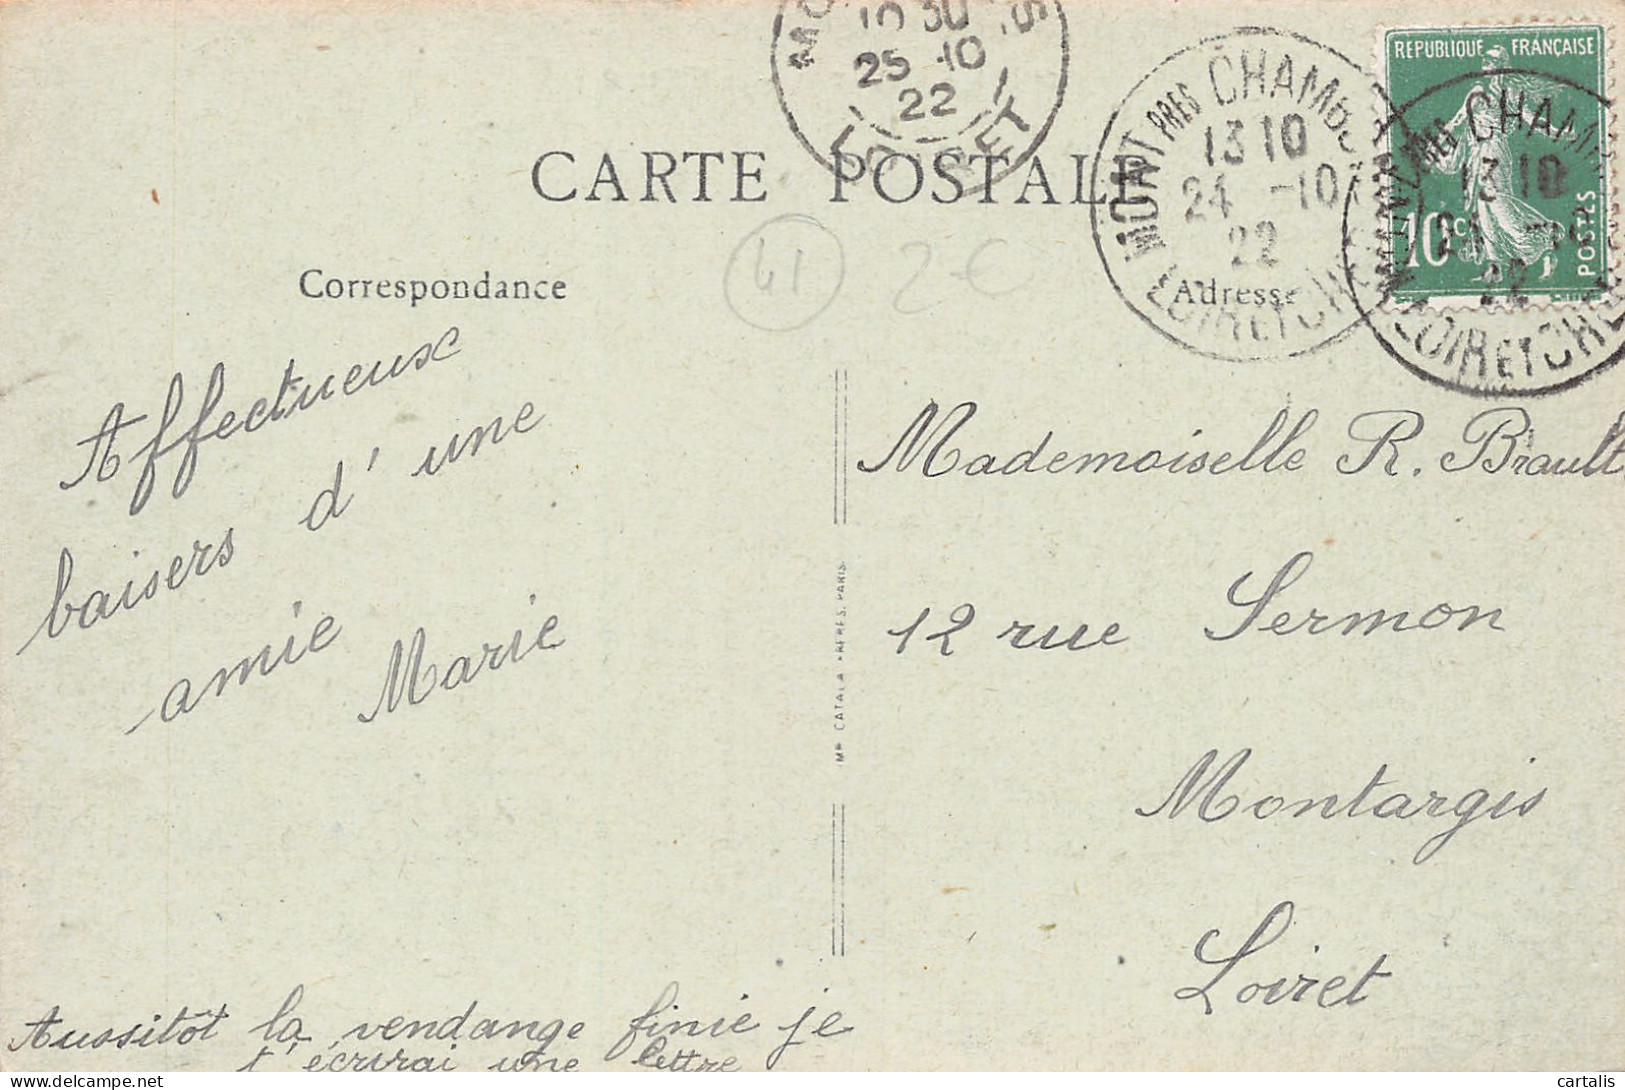 10 30
25 -10
22
MONT PRES CHAMB
13 10
24 -10
22
LOIR ET CHER
REPUBLIQUE FRANÇAISE
10c
POSTES
CHAM
13 10
22
LOIR ET CHER
CARTE POSTALE
41
2€
Correspondance
Adresse
Affectueux
baisers d'une
amie
Marie
Aussitôt la vendange finie je
t'écrirai une lettre
IMP. CATALA FRERES, PARIS
Mademoiselle R. Brault
12 rue Sermon
Montargis
Loiret
delcampe.net
cartalis